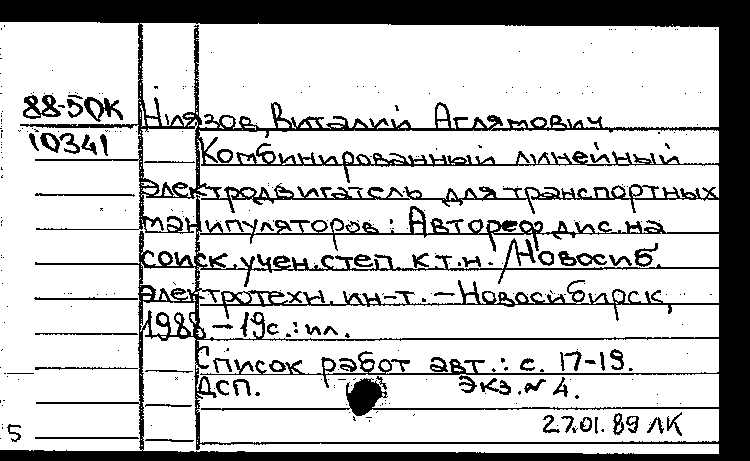 88-5ДК Ниязов, Виталий Аглямович.
10341 Комбинированный линейный
электродвигатель для транспортных
манипуляторов: Автореф. дис. на
соиск. учен. степ. к.т.н. /Новосиб.
электротехн. ин-т. – Новосибирск,
1988. – 19с. : ил.
Список работ авт.: с. 17-19.
ДСП. Экз. № 4.
27.01.89 ЛК
5